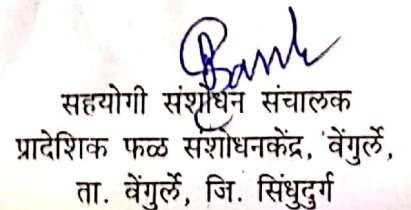 सहयोगी संशोधन संचालक
प्रादेशिक फळ संशोधनकेंद्र, वेंगुर्ले,
ता. वेंगुर्ले, जि. सिंधुदुर्ग